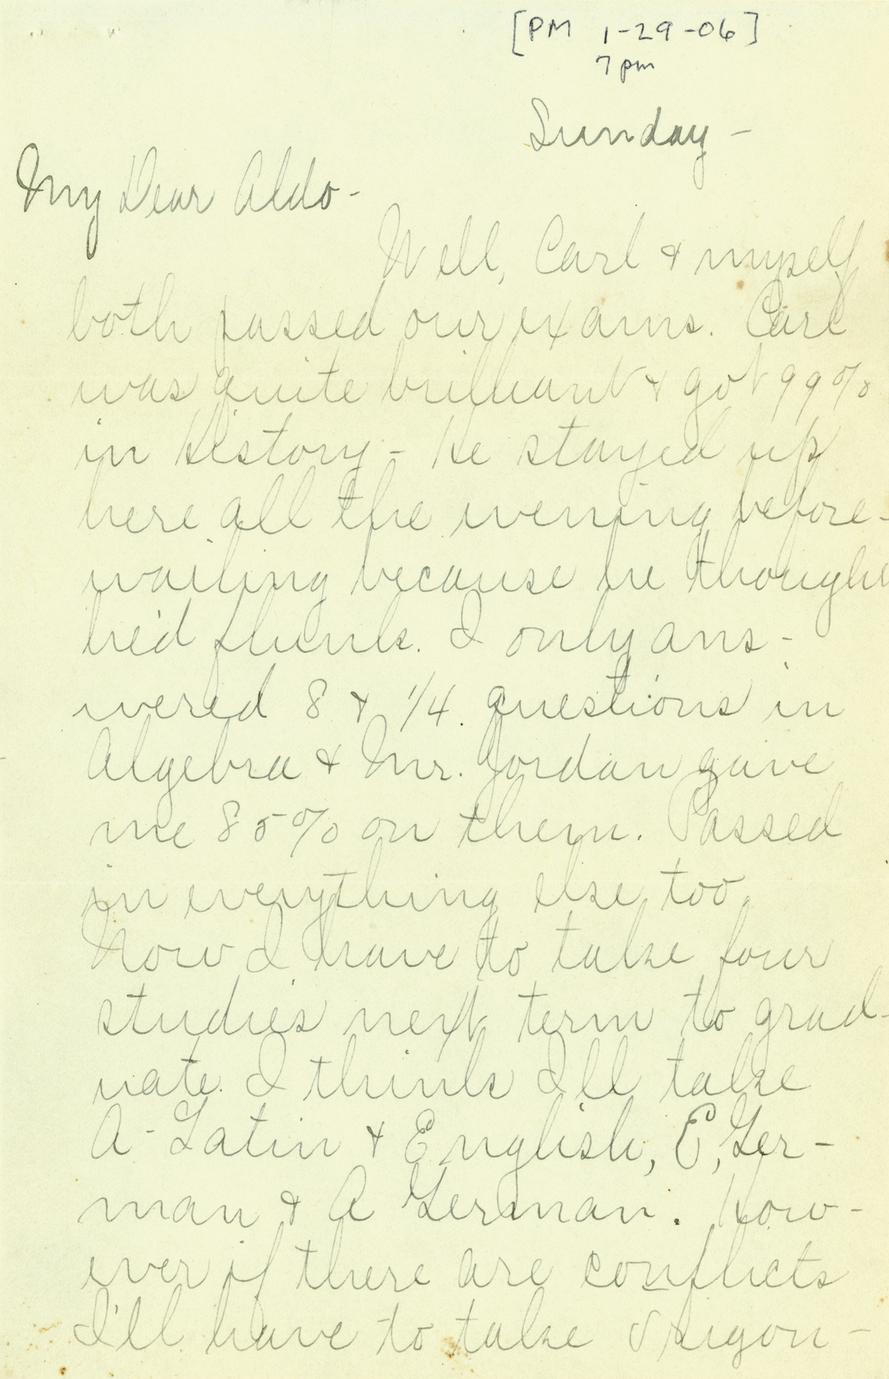 [PM 1-29-06]
7pm
Sunday -
My Dear Aldo -
Well, Carl & myself
both passed our exams. Carl
was quite brilliant & got 99%
in History - He stayed up
here all the evening before -
wailing because he thought
he'd flunk. I only ans -
wered 8 & 1/4 questions in
Algebra & Mr. Jordan gave
me 85% on them. Passed
in everything else too.
Now I have to take four
studies next term to grad -
uate. I think I'll take
A - Latin & English, E, Ger -
man & A German. How -
ever if there are conflicts
I'll have to take Trigon -